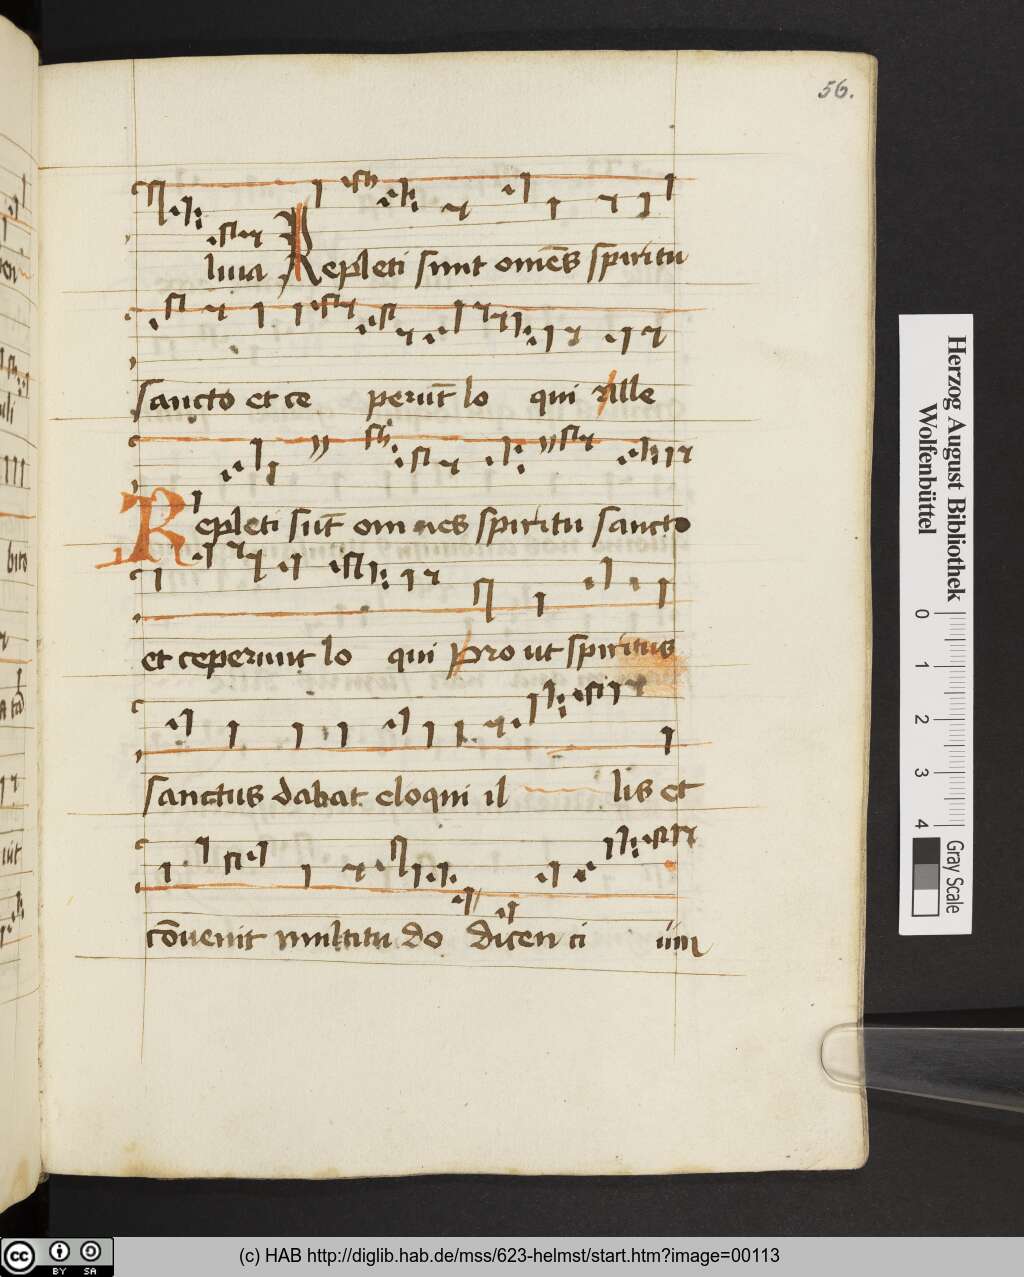 56.
luia Repleti sunt om̄es spiritu
sancto et ce perūt lo qui Alle
Repleti sūt om nes spiritu sancto
et ceperunt lo qui Pro ut spiritus
sanctus dabat eloqui il lis et
cōuenit multitu do dicen ci um
Herzog August Bibliothek
Wolfenbüttel
0 1 2 3 4
Gray Scale
cc BY SA
(c) HAB http://diglib.hab.de/mss/623-helmst/start.htm?image=00113